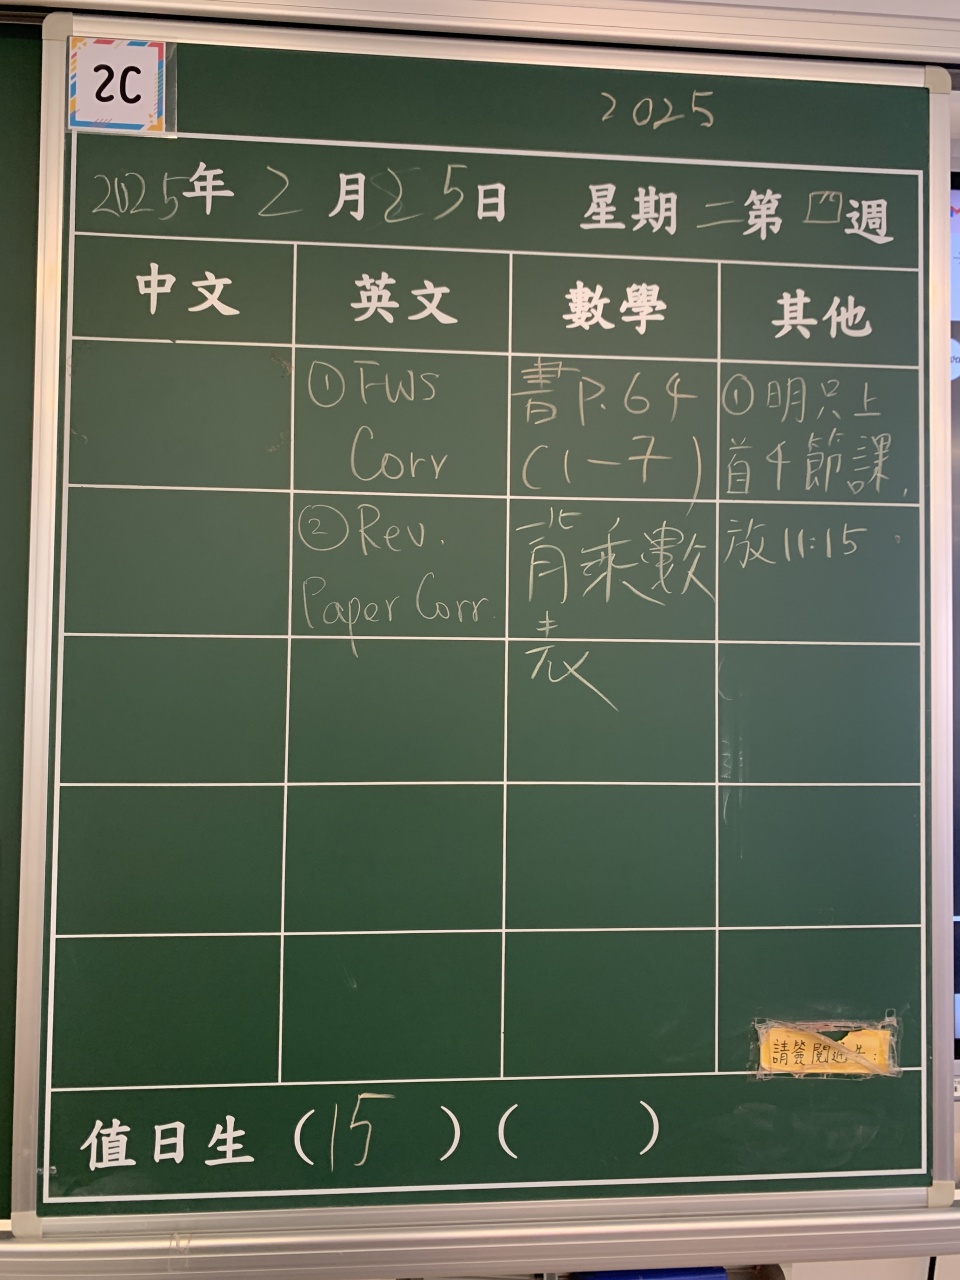 2C
2025
2025年 2 月 25日 星期 二 第 四 週
中文 英文 數學 其他
① FWS
Corr
② Rev.
Paper Corr.
書 P. 64
(1-7)
背乘數
表
① 明只上
首4節課,
放 11:15.
請簽閱
值日生 (15) ( )